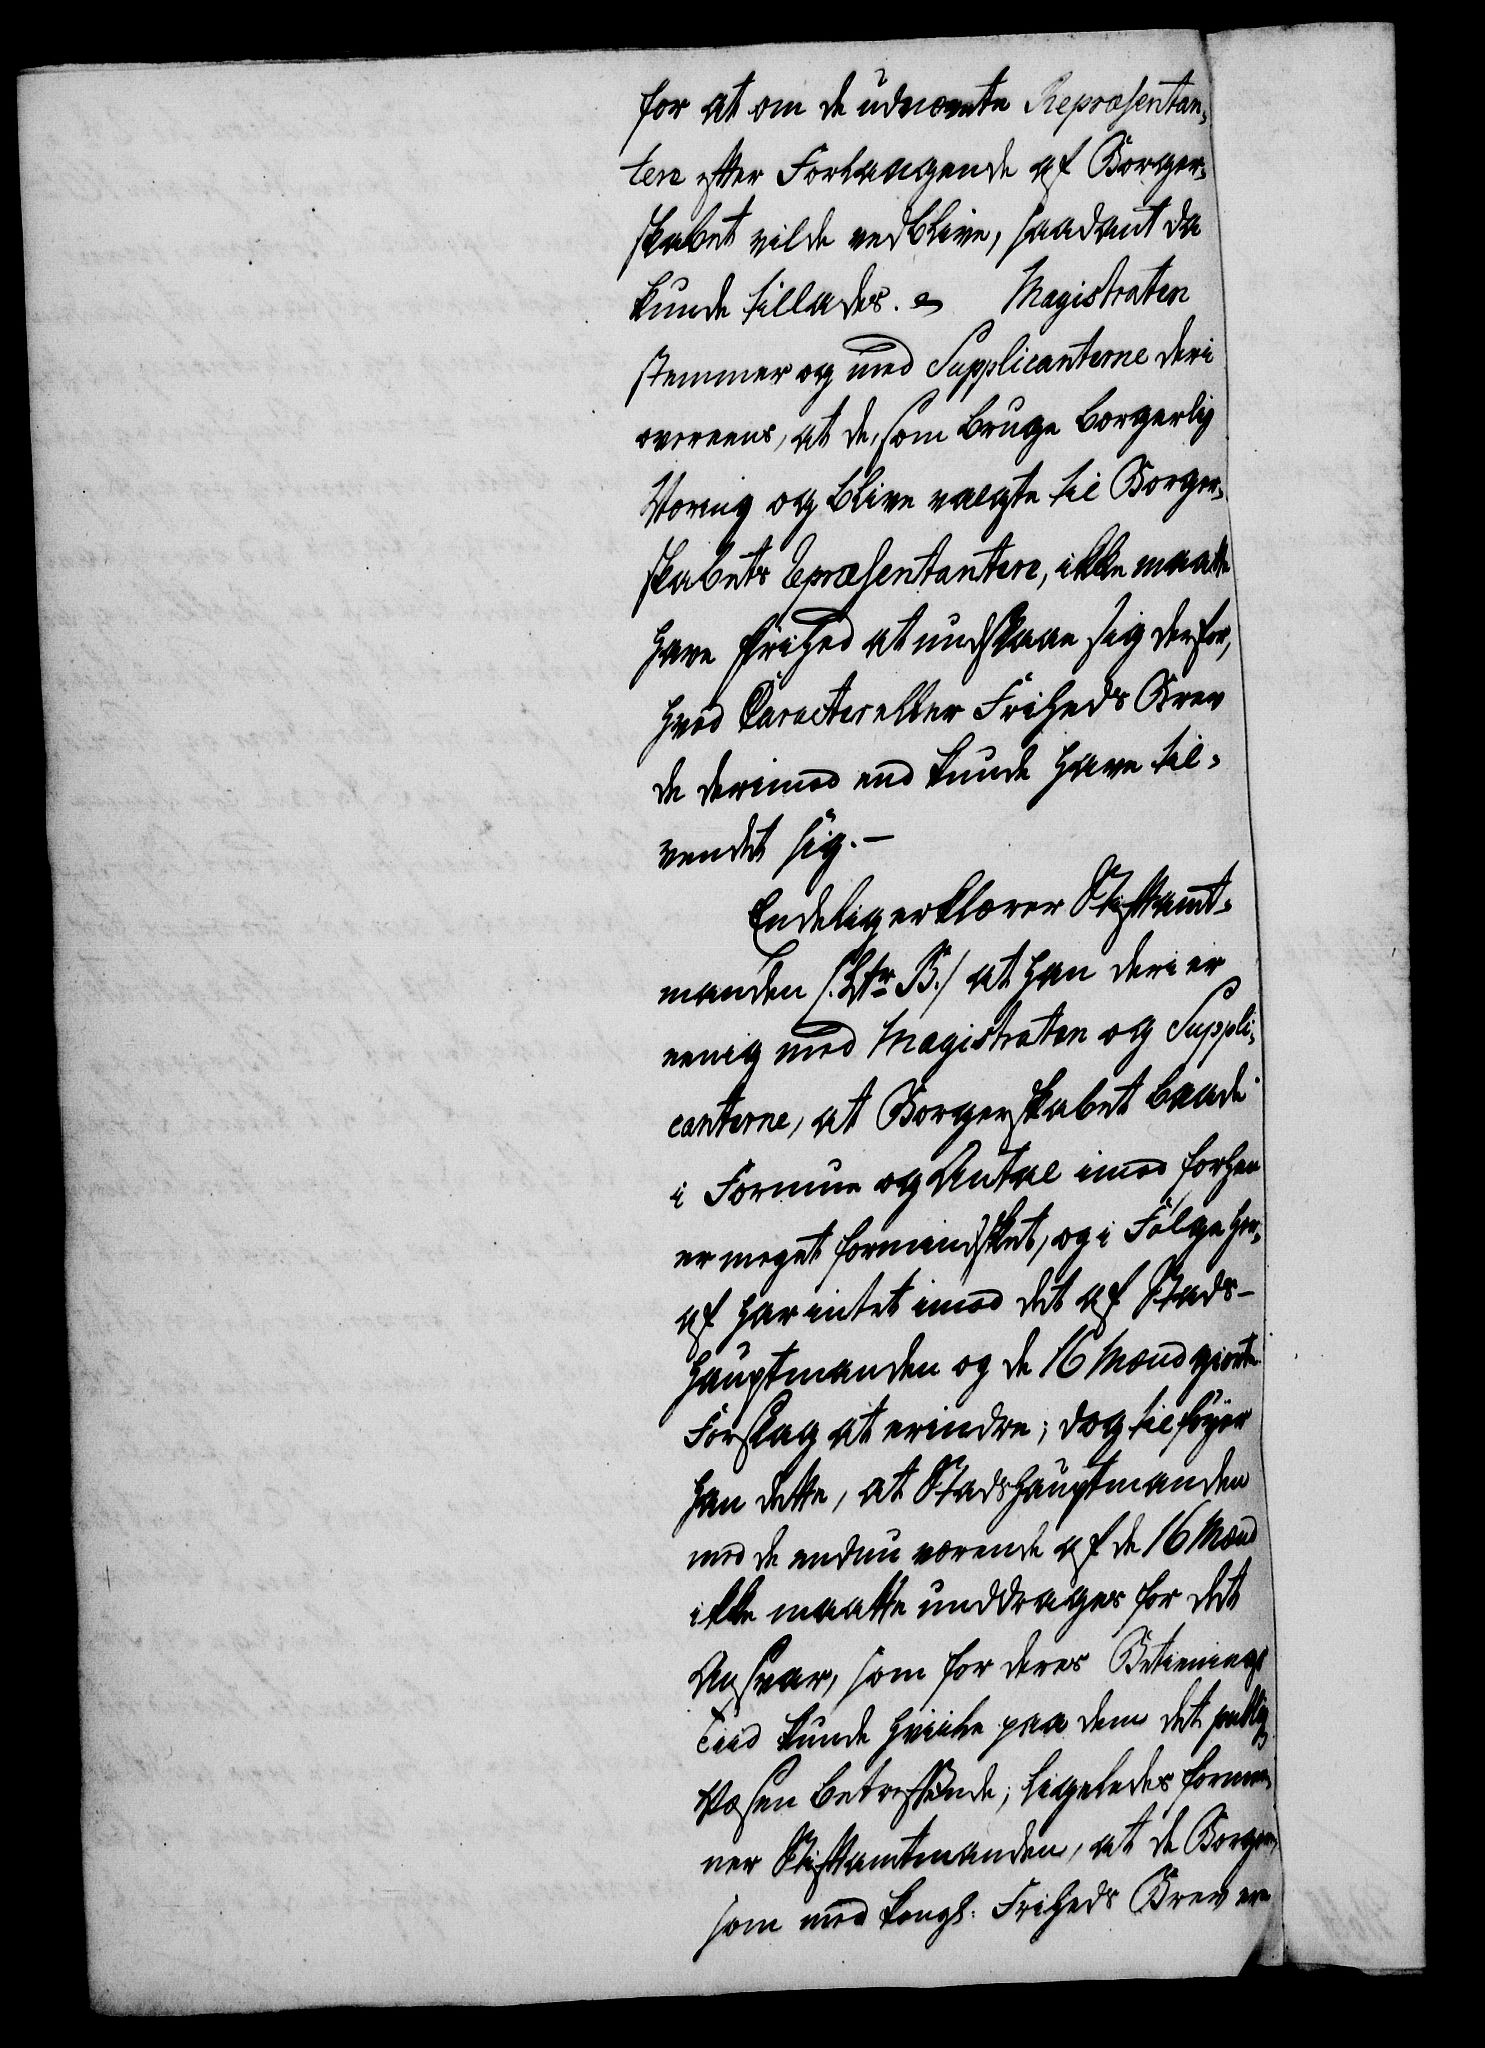 for at om de udnævnte Repræsentan-
tere efter Forlangende af Borger-
skabet vilde vedblive, saadant da
kunde tillades. Magistraten
stemmer og med Supplicanterne deri
overeens, at de, som bruge borgerlig
Næring og blive valgte til Borger-
skabets repræsentantere, ikke maatte
have frihed at undslaae sig derfor,
hvad Caracter eller Friheds Brev
de derimod end kunde have til-
vendet sig.-
Endelig erklærer Stiftamt-
manden /:Ltr B:/ at han deri er
eenig med Magistraten og Suppli-
canterne, at Borgerskabet baade
i Formue og Antal imod forhen
er meget formindsket, og i Følge her-
af har intet imod det af Stads-
hauptmanden og de 16 Mænd giorte
Forslag at erindre; dog tilføyer
han dette, at Stadshauptmanden
med de endnu værende af de 16 Mænd
ikke maatte unddrages for det
Ansvar, som for deres Betienings
Tiid kunde hviile paa dem det publiq
Væsen betreffende; ligeledes formee-
ner Stiftamtmanden, at de Borgere,
som med kongl: Friheds Brev ere